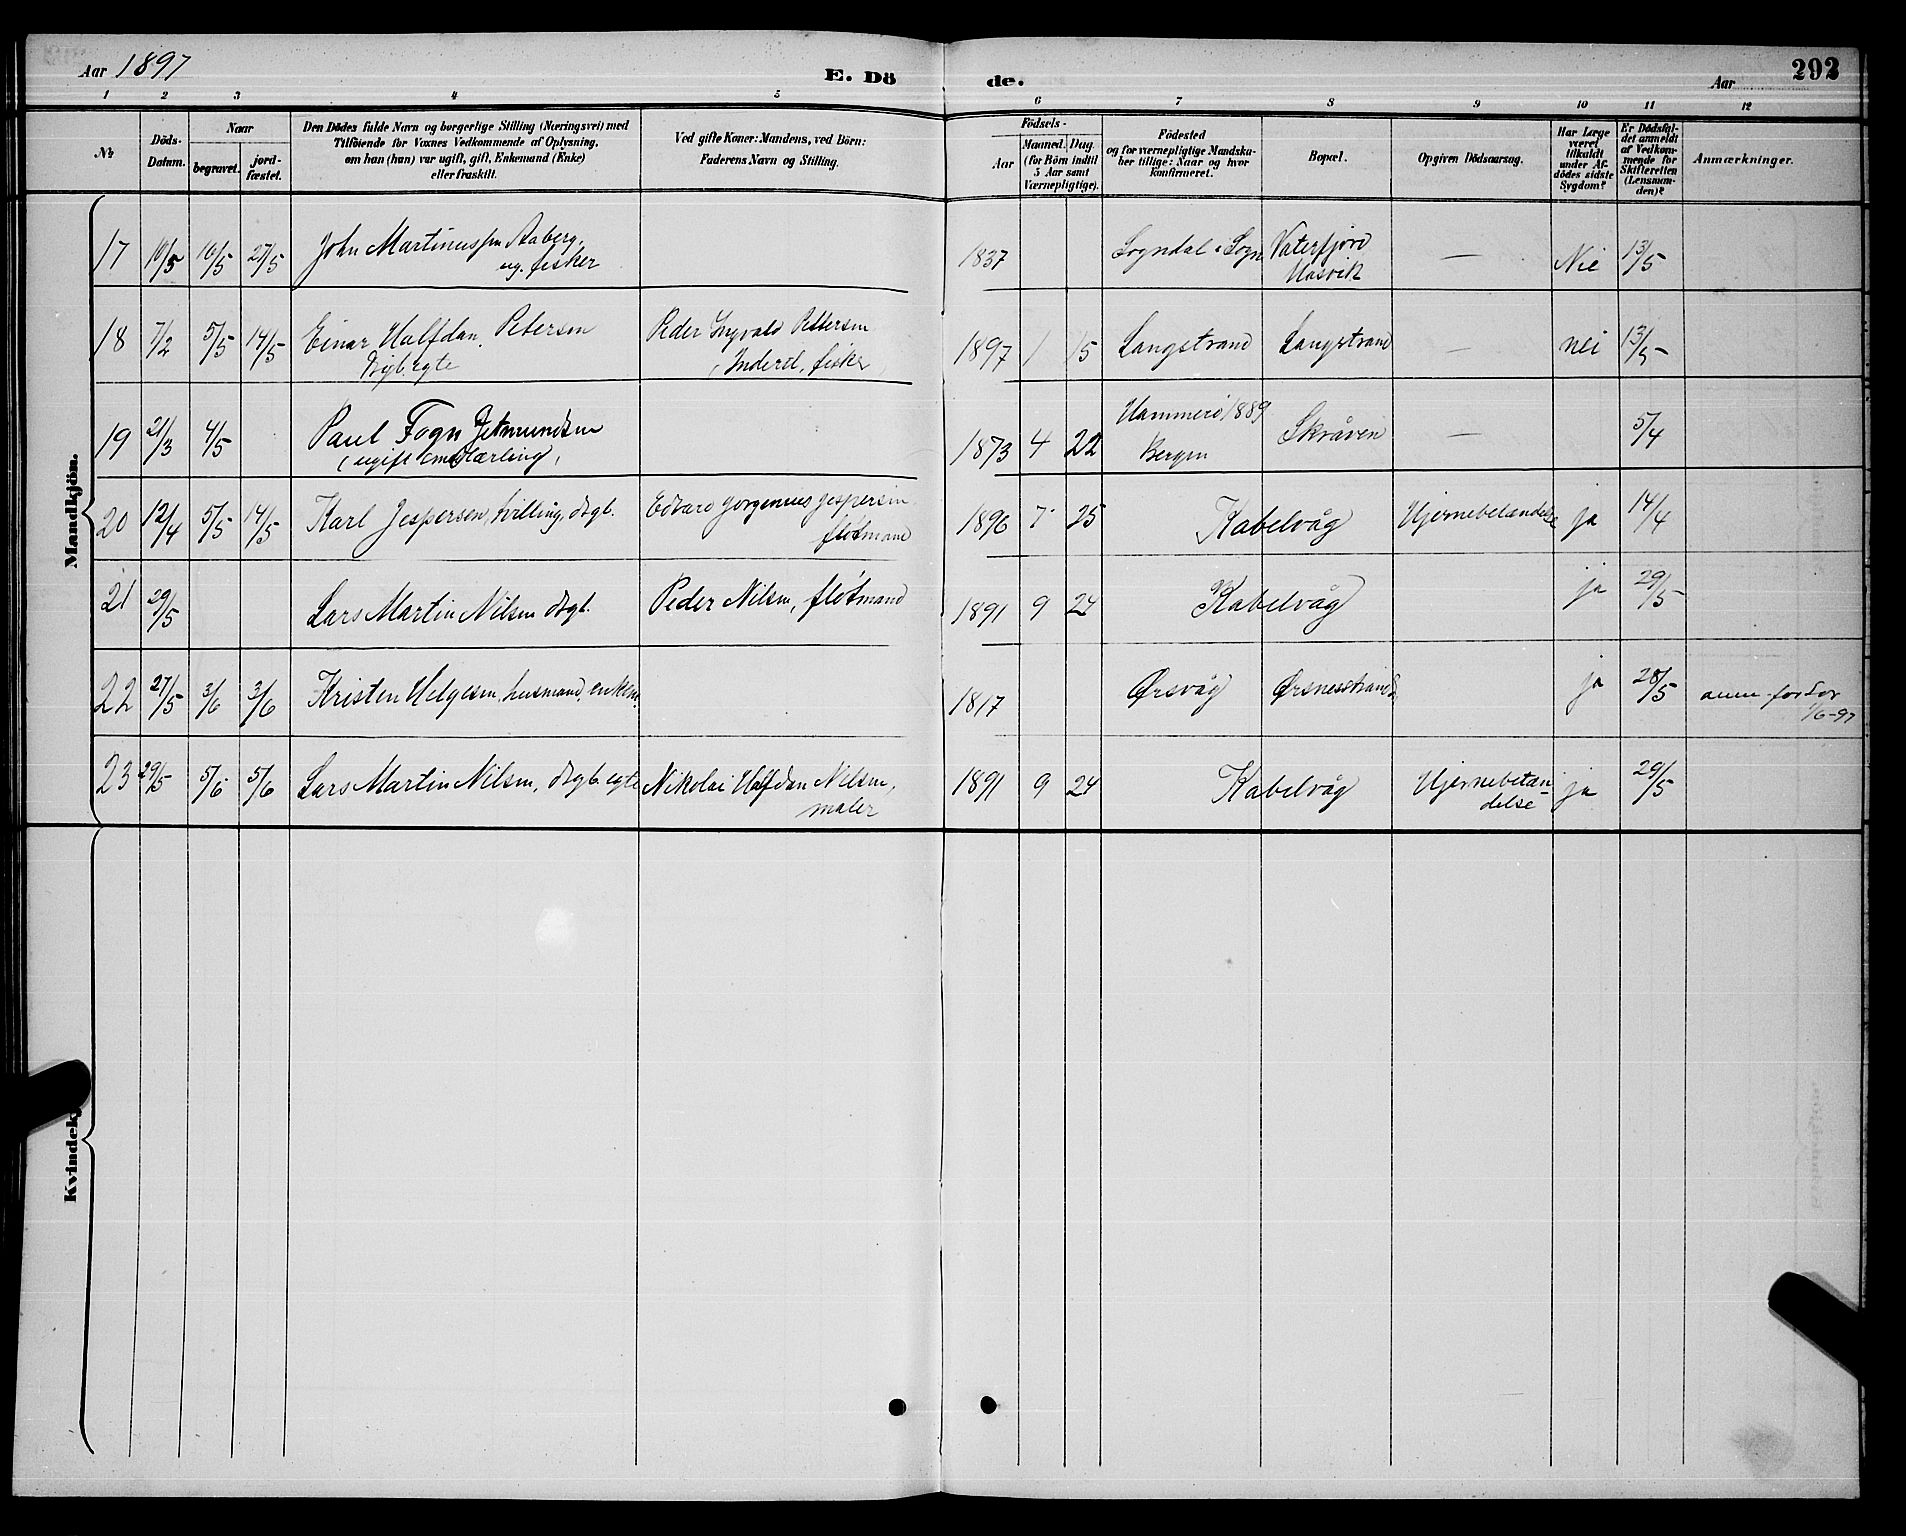 Aar 1897
E. Dö
de.
Aar
292
1 2 3 4 5 6 7 8 9 10 11 12
№
Döds-
Datum.
Naar
begravet.
jord-
fæstet.
Den Dödes fulde Navn og borgerlige Stilling (Næringsvei) med
Tilföiende for Voxnes Vedkommende af Oplysning,
om han (hun) var ugift, gift, Enkemand (Enke)
eller fraskilt.
Ved gifte Koner: Mandens, ved Börn:
Faderens Navn og Stilling.
Födsels-
Aar
Maaned. Dag.
(for Börn indtil
5 Aar samt
Værnepligtige).
Födested
og for værnepligtige Mandska-
ber tillige: Naar og hvor
konfirmeret.
Bopæl.
Opgiven Dödsaarsag.
Har Læge
været
tilkaldt
under Af-
dödes sidste
Sygdom?
Er Dödsfal-
det anmeldt
af Vedkom-
mende for
Skifteretten
(Lensman-
den)?
Anmærkninger.
Mandkjön.
17 10/5 10/5 27/5 John Martinussen Aaberg, 1837 Sogndal i Sogn Vaterfjord — Nei 13/5
ug. fisker
Uosvik
18 7/2 5/5 14/5 Einar Halfdan Petersen Peder Ingvald Pettersen 1897 1 15 Langstrand Langstrand — nei 13/5
egte
Inderst, fisker
19 21/3 4/5 Paul Fogn Jetmundsen 1873 4 22 Hammerö 1889 Skråven — 5/4
(ugift
Bergen
20 12/4 5/5 14/5 Karl Jespersen, tvilling, dsgb. Edvard Jørgenius Jespersen 1896 7 25 Kabelvåg Hjernebetændelse ja 14/4
fløtmand
21 29/5 Lars Martin Nilsen dsgb. Peder Nilsen, fløtmand 1891 9 24 Kabelvåg ja 29/5
22 27/5 3/6 3/6 Kristen Helgesen, husmand, enkem. 1817 Ørsvåg Ørsnesstrand ja 28/5 anm. for Sor
1/6-97
23 29/5 5/6 5/6 Lars Martin Nilsen, dsgb. egte Nikolai Halfdan Nilsen, 1891 9 24 Kabelvåg Hjernebetæn- ja 29/5
maler
delse
Kvindek